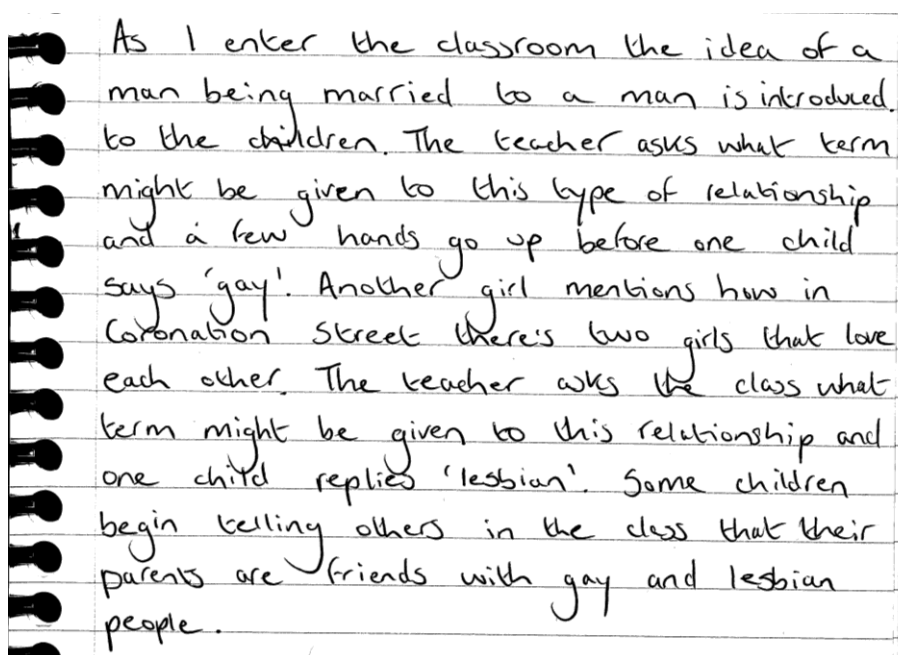 As I enter the classroom the idea of a
man being married to a man is introduced
to the children. The teacher asks what term
might be given to this type of relationship
and a few hands go up before one child
says 'gay'. Another girl mentions how in
Coronation Street there's two girls that love
each other. The teacher asks the class what
term might be given to this relationship and
one child replies 'lesbian'. Some children
begin telling others in the class that their
parents are friends with gay and lesbian
people.